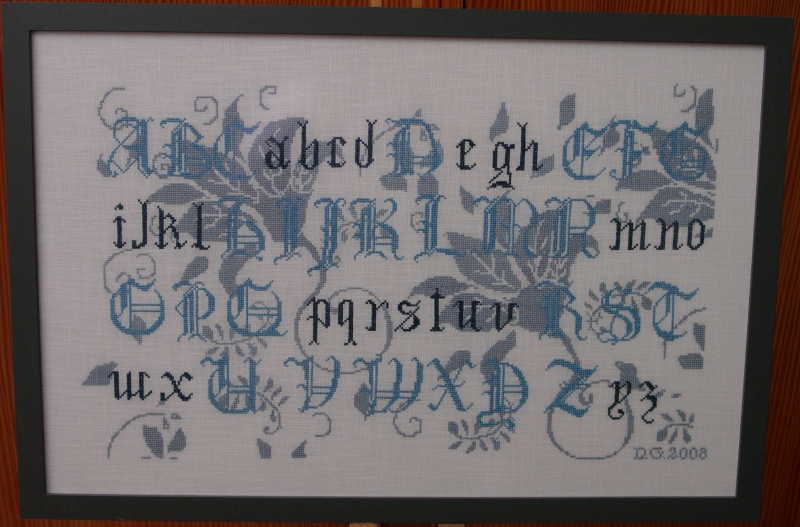 ABC abcd D egh EFG
ijkl HIJKLMN mno
OPQ pqrstuv RST
wx UVWXY Z yz
D.G.2008